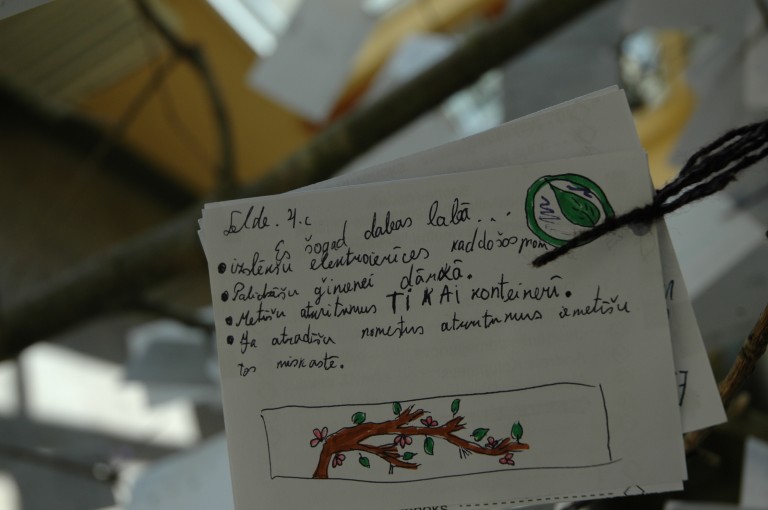 Selde. 4.c
Es šogad dabas labā...
• izslēngšu elektroierīces kad došos prom
• Palidzēšu ģimenei dārzā.
• Metīšu atkritumus TIKAI konteinerī.
• Ja atradīšu nomestus atkritumus izmetīšu
tos miskastē.